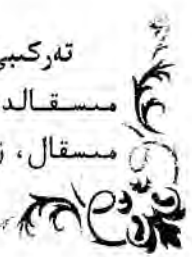 تەركىبى
مىسقالد
مىسقال، ز